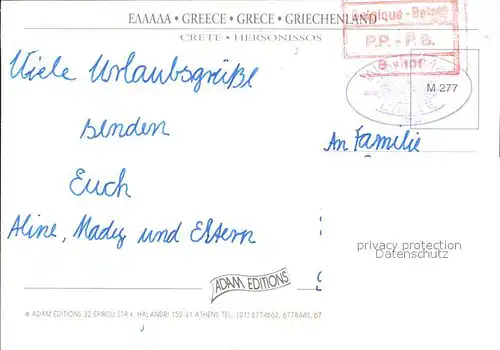 ΕΛΛΑΔΑ • GREECE • GRÈCE • GRIECHENLAND
CRETE • HERSONISSOS
Belgique - België
P.P. - P.B.
M 277
Viele Urlaubsgrüße
senden
Euch
Aline, Mady und Eltern
An Familie
privacy protection
Datenschutz
ADAM EDITIONS
ADAM EDITIONS 32 EPIROU STR. HALANDRI 152 31 ATHENS TEL. (01) 6774662, 6778445, 67